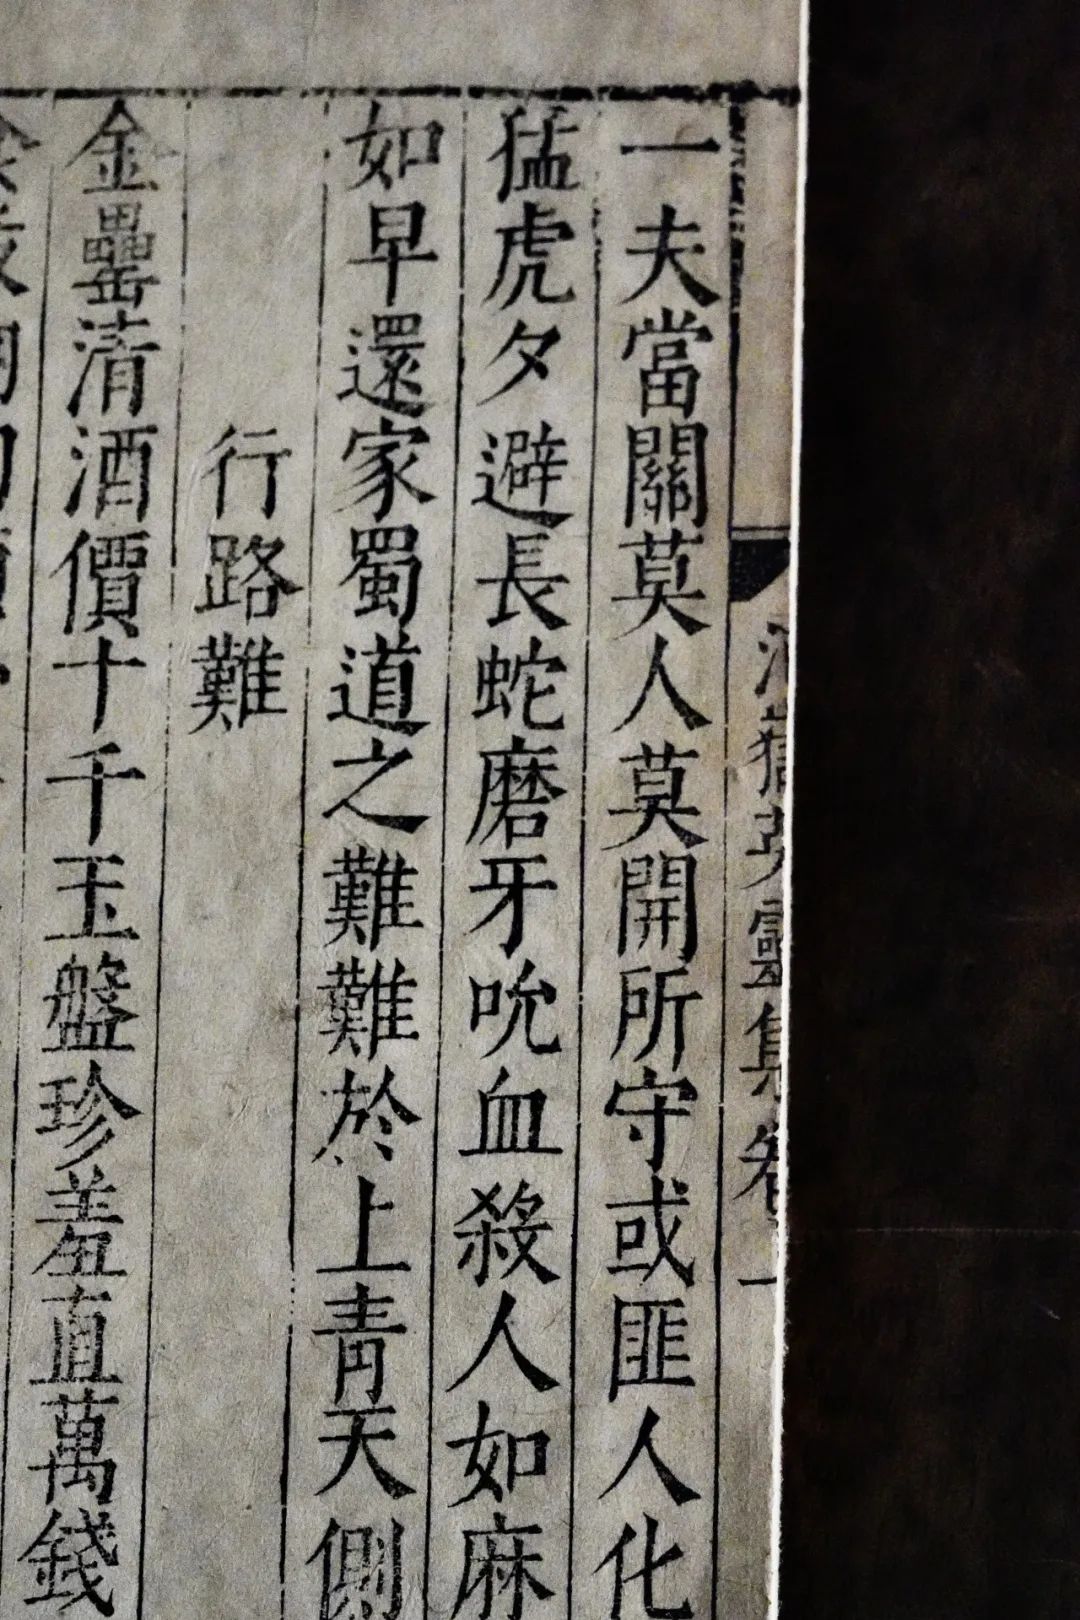 河嶽英靈集卷一
一夫當關莫人莫開所守或匪人化
猛虎夕避長蛇磨牙吮血殺人如麻
如早還家蜀道之難難於上青天側
行路難
金罍清酒價十千玉盤珍羞直萬錢